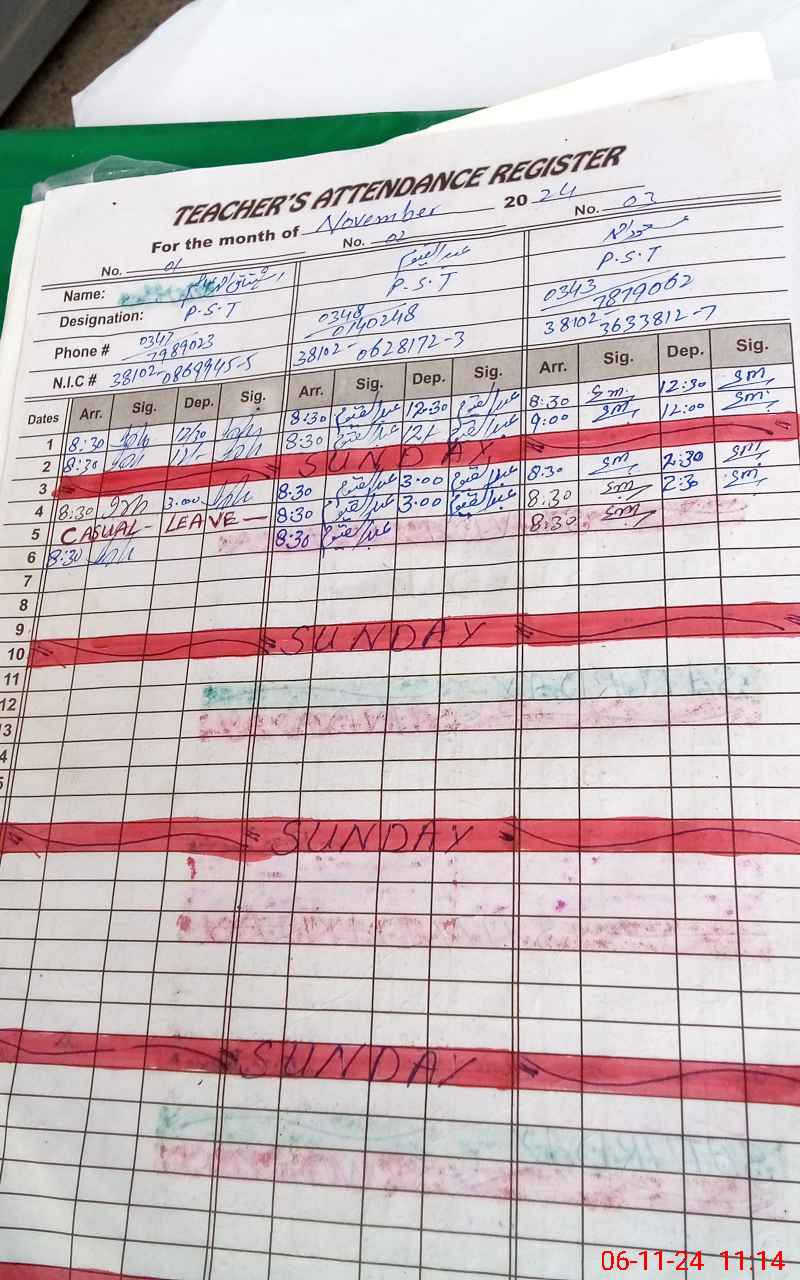 TEACHER'S ATTENDANCE REGISTER
For the month of November 2024
No. 01 No. 02 No. 03
Name: عبدالقیوم
Designation: P.S.T P.S.T P.S.T
Phone # 0347 7989023 0348 0140248 0343 7879062
N.I.C # 38102-0869945-5 38102-0628172-3 38102-3633812-7
Dates Arr. Sig. Dep. Sig. Arr. Sig. Dep. Sig. Arr. Sig. Dep. Sig.
1 8:30 8:30 عبدالقیوم 12:30 عبدالقیوم 8:30 Sm 12:30 Sm
2 8:30 8:30 عبدالقیوم عبدالقیوم 9:00 Sm 12:00 Sm
3 SUNDAY
4 8:30 3:00 8:30 عبدالقیوم 3:00 عبدالقیوم 8:30 Sm 2:30 Sm
5 CASUAL - LEAVE - 8:30 عبدالقیوم 3:00 عبدالقیوم 8:30 Sm 2:30 Sm
6 8:30 8:30 عبدالقیوم 8:30 Sm
7
8
9
10 SUNDAY
11
12
13
4
5
SUNDAY
SUNDAY
06-11-24 11:14